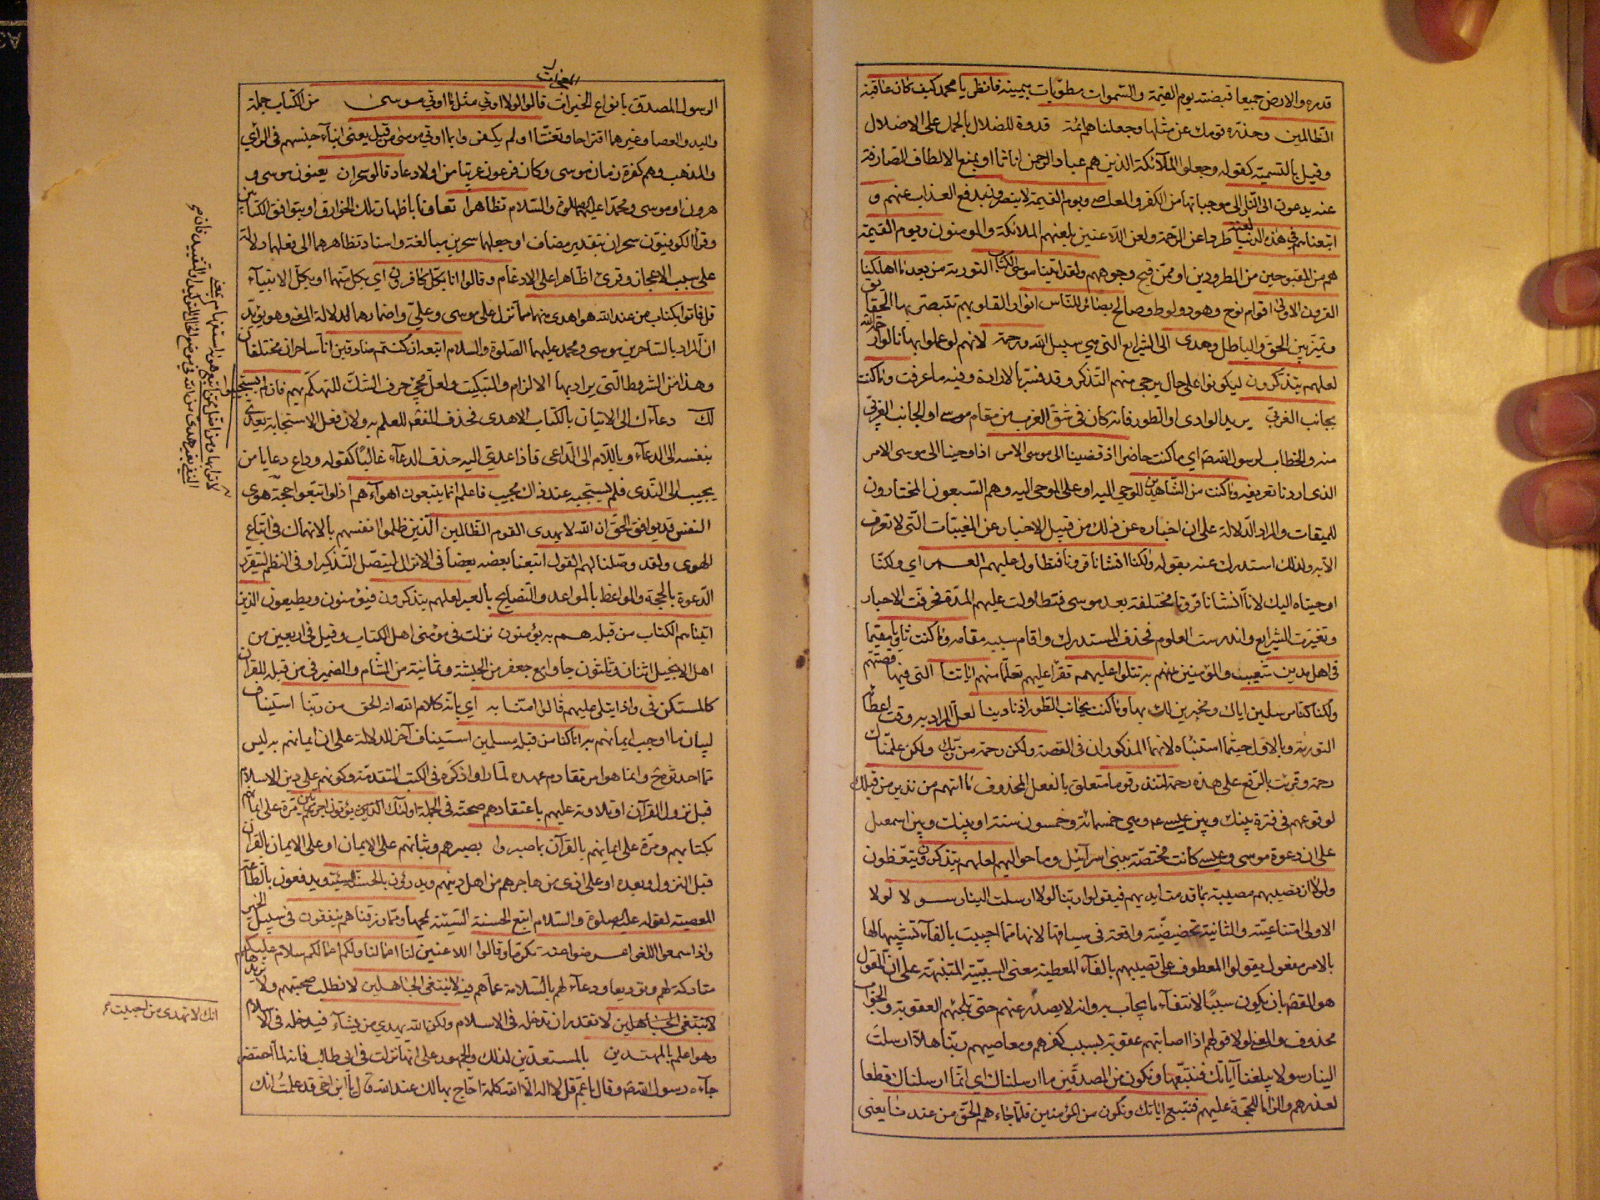 قدره والارض جميعا قبضته يوم القيمة والسموات مطويات بيمينه فانظر يا محمد كيف كان عاقبة
الظالمين وحذر قومك عن مثلها وجعلناهم ائمة قدوة للضلال بالحمل على الاضلال
وقيل بالتسمية كقوله وجعلوا الملائكة الذين هم عباد الرحمن اناثا او بمنع الالطاف الصارفة
عنه يدعون الى النار الى موجباتها من الكفر والمعاصي ويوم القيمة لا ينصرون بدفع العذاب عنهم و
اتبعناهم في هذه الدنيا لعنة طردا عن الرحمة ولعن اللاعنين يلعنهم الملائكة والمؤمنون ويوم القيمة
هم من المقبوحين من المطرودين او ممن قبح وجوههم ولقد اتينا موسى الكتاب التورية من بعد ما اهلكنا
القرون الاولى اقوام نوح وهود ولوط وصالح بصائر للناس انوارا لقلوبهم تتبصر بها الحقائق
وتميز بين الحق والباطل وهدى الى الشرايع التي هي سبيل الله ورحمة لانهم لو عملوا بها نالوا رحمة الله
لعلهم يتذكرون ليكونوا على حال يرجى منهم التذكر وقد فسر بالارادة وفيه ما عرفت وما كنت
بجانب الغربي يريد الوادي او الطور فانه كان في شق الغرب من مقام موسى او الجانب الغربي
منه والخطاب لرسول الله ص اي ما كنت حاضرا اذ قضينا الى موسى الامر اذ اوحينا الى موسى الامر
الذي اردنا تعريفه وما كنت من الشاهدين للوحي اليه او على الموحى اليه وهم السبعون المختارون
للميقات والمراد الدلالة على ان اخباره عن ذلك من قبيل الاخبار عن المغيبات التي لا تعرف
الا به ولذلك استدرك عنه بقوله ولكنا انشانا قرونا فتطاول عليهم العمر اي ولكنا
اوحيناه اليك لانا انشانا قرونا مختلفة بعد موسى فتطاولت عليهم المدة فحرفت الاخبار
وتغيرت الشرايع واندرست العلوم فحذف المستدرك واقام سببه مقامه وما كنت ثاويا مقيما
في اهل مدين شعيب والمؤمنين منهم به تتلوا عليهم تقرأ عليهم تعلما منهم اياتنا التي فيها قصتهم
ولكنا كنا مرسلين اياك ومخبرين لك بها وما كنت بجانب الطور اذ نادينا لعل المراد به وقت اعطائه
التورية وبالاول حيثما استنباه لانهما المذكوران في القصة ولكن رحمة من ربك ولكن علمناك
رحمة وقرئت بالرفع على هذه رحمة لتنذر قوما متعلق بالفعل المحذوف ما اتيهم من نذير من قبلك
لوقوعهم في فترة بينك وبين عيسى وهي خمسمائة وخمسون سنة او بينك وبين اسمعيل
على ان دعوة موسى وعيسى كانت مختصة ببني اسرائيل وما حواليهم لعلهم يتذكرون يتعظون
ولولا ان تصيبهم مصيبة بما قدمت ايديهم فيقولوا ربنا لولا ارسلت الينا رسولا لولا
الاولى امتناعية والثانية تحضيضية واقعة في سياقها لانها مما اجيبت بالفاء تشبيها لها
بالامر مفعول يقولوا المعطوف على تصيبهم بالفاء المعطية معنى السببية المنبهة على ان القول
هو المقصود بان يكون سببا لانتفاء ما يجاب به وانه لا يصدر عنهم حتى تلجئهم العقوبة والجواب
محذوف والمعنى لولا قولهم اذا اصابتهم عقوبة بسبب كفرهم ومعاصيهم ربنا هلا ارسلت
الينا رسولا يبلغنا آياتك فنتبعها ونكون من المصدقين ما ارسلناك اي انما ارسلناك قطعا
لعذرهم والزاما للحجة عليهم فنتبع اياتك ونكون من المؤمنين فلما جاءهم الحق من عندنا يعني
الرسول المصدق بانواع المعجزات قالوا لولا اوتي مثل ما اوتي موسى من الكتاب جملة
واليد والعصا وغيرهما اقتراحا وتعنتا اولم يكفروا بما اوتي موسى من قبل يعني ابناء جنسهم في الراي
والمذهب وهم كفرة زمان موسى وكان فرعون عربيا من اولاد عاد قالوا سحران يعنون موسى و
هرون او موسى ومحمدا عليهما الصلوة والسلام تظاهرا تعاونا باظهار تلك الخوارق او بتوافق الكتابين
وقرأ الكوفيون سحران بتقدير مضاف او جعلهما سحرين مبالغة واسناد تظاهرهما الى فعلهما دلالة
على سبب الاعجاز وقرئ اظاهرا على الادغام وقالوا انا بكل كافرون اي بكل منهما او بكل الانبياء
قل فاتوا بكتاب من عند الله هو اهدى منهما مما نزل على موسى وعلي واضمارهما لدلالة المعنى وهو يؤيد
ان المراد بالساحرين موسى ومحمد عليهما الصلوة والسلام اتبعه ان كنتم صادقين انا ساحران مختلقان
وهذا من الشروط التي يراد بها الالزام والتبكيت ولعل مجئ حرف الشك للتهكم بهم فان لم يستجيبوا
لك دعاءك الى الاتيان بالكتاب الاهدى فحذف المفعول للعلم به ولان فعل الاستجابة يعدى
بنفسه الى الدعاء وباللام الى الداعي فاذا عدي اليه حذف الدعاء غالبا كقوله وداع دعا يا من
يجيب الى الندى فلم يستجبه عند ذاك مجيب فاعلم انما يتبعون اهواءهم اذ لو اتبعوا حجة هوى
النفس قد يوافق الحق ان الله لا يهدي القوم الظالمين الذين ظلموا انفسهم بالانهماك في اتباع
الهوى ولقد وصلنا لهم القول اتبعنا بعضه بعضا في الانزال ليتصل التذكير او في النظم لتتقرر
الدعوة بالحجة والمواعظ بالمواعد والنصايح بالعبر لعلهم يتذكرون فيؤمنون ويطيعون الذين
اتيناهم الكتاب من قبله هم به يؤمنون نزلت في مؤمني اهل الكتاب وقيل في اربعين من
اهل الانجيل اثنان وثلثون جاوا مع جعفر من الحبشة وثمانية من الشام والضمير في من قبله للقرآن
كالمستكن في واذا يتلى عليهم قالوا امنا به اي بانه كلام الله انه الحق من ربنا استيناف
لبيان ما اوجب ايمانهم به انا كنا من قبله مسلمين استيناف آخر للدلالة على ان ايمانهم به ليس
مما احدثوه ح وانما هو امر تقادم عهده لما راوا ذكره في الكتب المتقدمة وكونهم على دين الاسلام
قبل نزول القرآن او تلاوته عليهم باعتقادهم صحته في الجملة اولئك يؤتون اجرهم مرتين مرة على ايمانهم
بكتابهم ومرة على ايمانهم بالقرآن بما صبروا بصبرهم وثباتهم على الايمانين او على الايمان بالقرآن
قبل النزول وبعده او على اذى من هاجرهم من اهل دينهم ويدرؤن بالحسنة السيئة ويدفعون بالطاعة
المعصية لقوله عليه الصلوة والسلام اتبع الحسنة السيئة تمحها ومما رزقناهم ينفقون في سبيل الخير
واذا سمعوا اللغو اعرضوا عنه تكرما وقالوا للاغين لنا اعمالنا ولكم اعمالكم سلام عليكم
متاركة لهم وتوديعا ودعاء لهم بالسلامة عما هم فيه لا نبتغي الجاهلين لا نطلب صحبتهم ولا نريدها
لا نبتغي الجاهلين لا تقدر ان تدخله في الاسلام ولكن الله يهدي من يشاء فيدخله في الاسلام
وهو اعلم بالمهتدين بالمستعدين لذلك والجمهور على انها نزلت في ابي طالب فانه لما احتضر
جاءه رسول الله ص وقال يا عم قل لا اله الا الله كلمة احاج بها لك عند الله قال يا ابن اخي قد علمت انك
انك لا تهدي من احببت